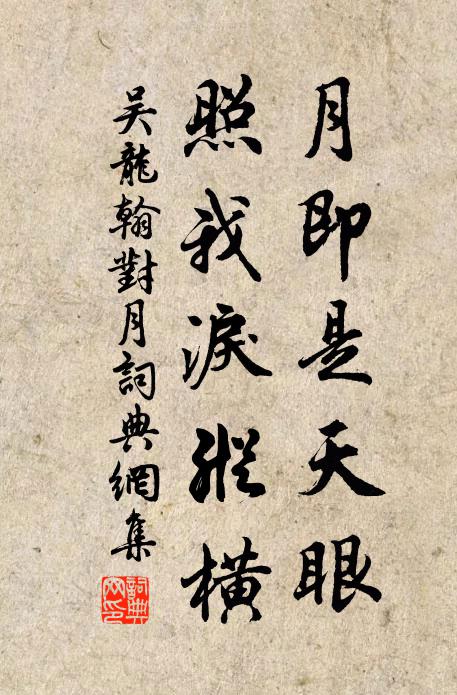 月即是天眼
照我淚縱橫
吳龍翰對月詞典網集
詞典
网印